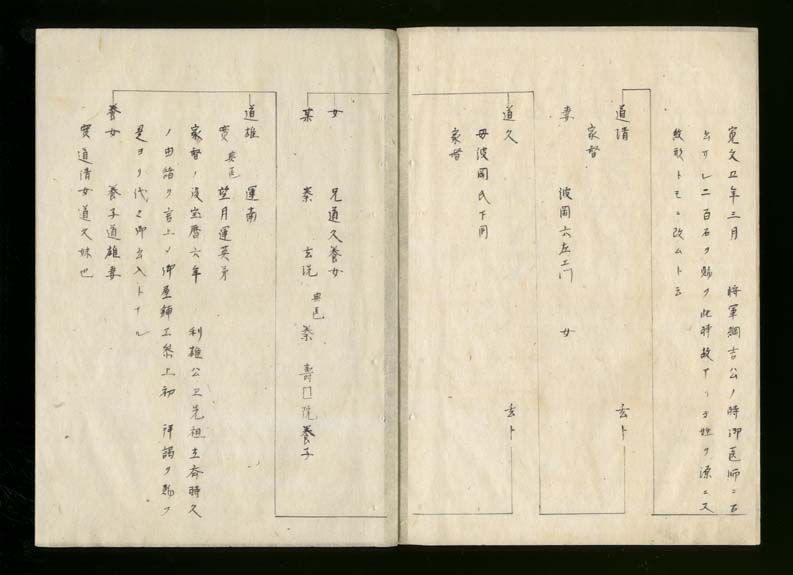 寛文丑年三月 将軍綱吉公ノ時御医師ニ召
出サレ二百石ヲ賜フ此時故アリテ姓ヲ源ニス
紋形トモニ改ムト云
道清 玄卜
家督
妻 波岡六左エ門 女
道久 玄卜
母波岡氏下同
家督
女 兄道久養女
某 柰 玄悦 典医 柰 壽□院養子
道雄 運南
実 典医 望月運英弟
家督ノ後宝暦六年 利雄公エ先祖主斎時久
ノ由諸ヲ言上ノ御屋鋪エ参上初 拝謁ヲ賜フ
是ヨリ代々御出入トナル
養女 養子道雄妻
実道清女道久妹也